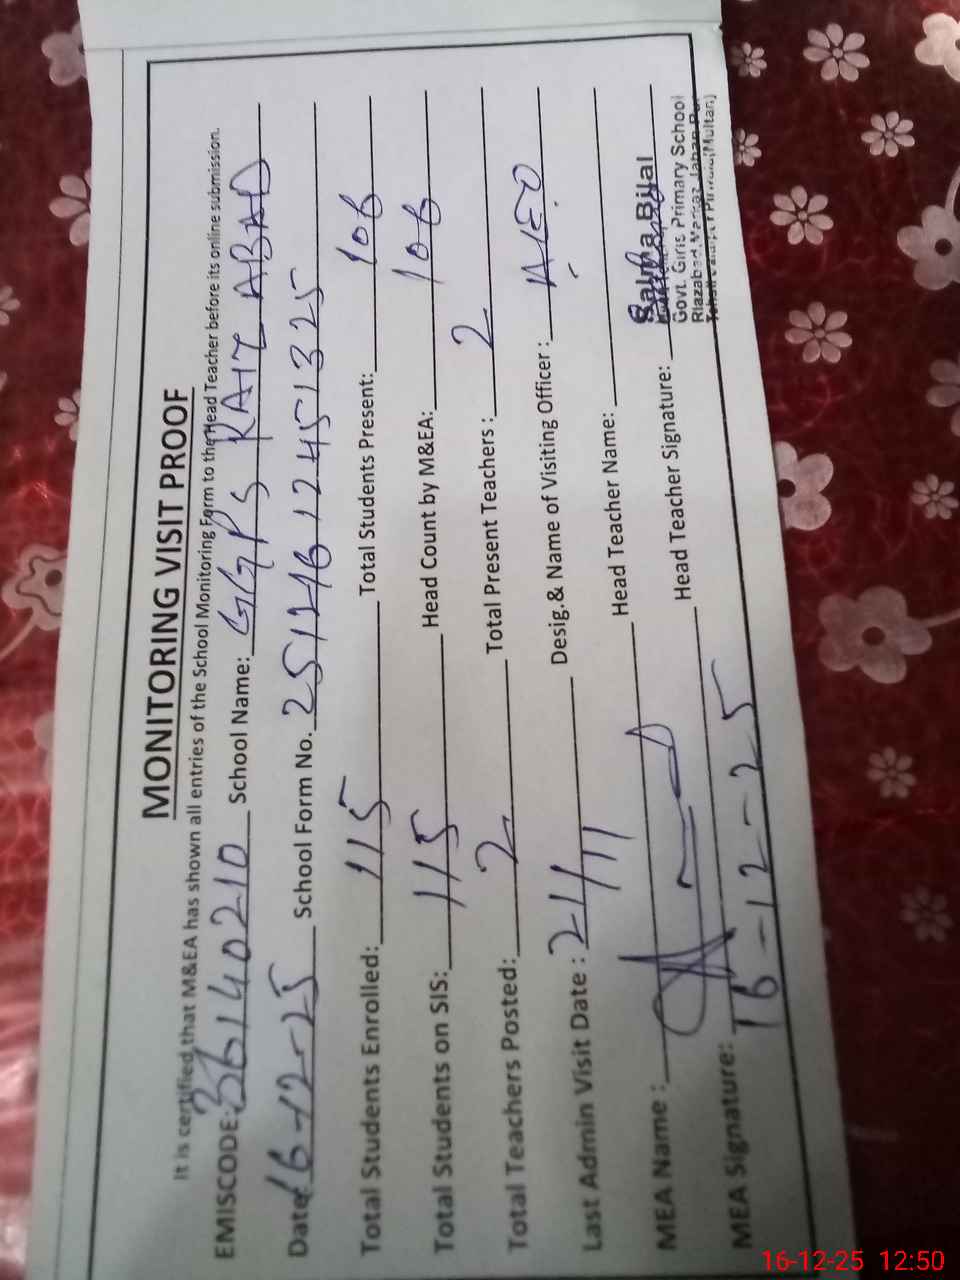 MONITORING VISIT PROOF
It is certified that M&EA has shown all entries of the School Monitoring Form to the Head Teacher before its online submission.
EMISCODE: 36140210 School Name: GGPS RAIZ ABAD
Date: 16-12-25 School Form No. 25121612451325
Total Students Enrolled: 115 Total Students Present: 106
Total Students on SIS: 115 Head Count by M&EA: 106
Total Teachers Posted: 2 Total Present Teachers: 2
Last Admin Visit Date: 21/11 Desig.& Name of Visiting Officer: AEO
MEA Name: Head Teacher Name:
MEA Signature: Head Teacher Signature:
16-12-25
Salma Bilal
Govt. Girls Primary School
Riazabad, Markaz Jahan Pur
(Multan)
16-12-25 12:50